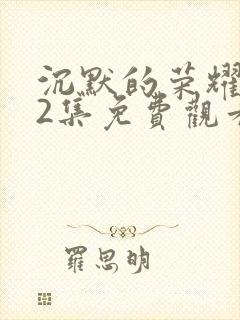 沉默的荣耀
2集免費觀
羅思明